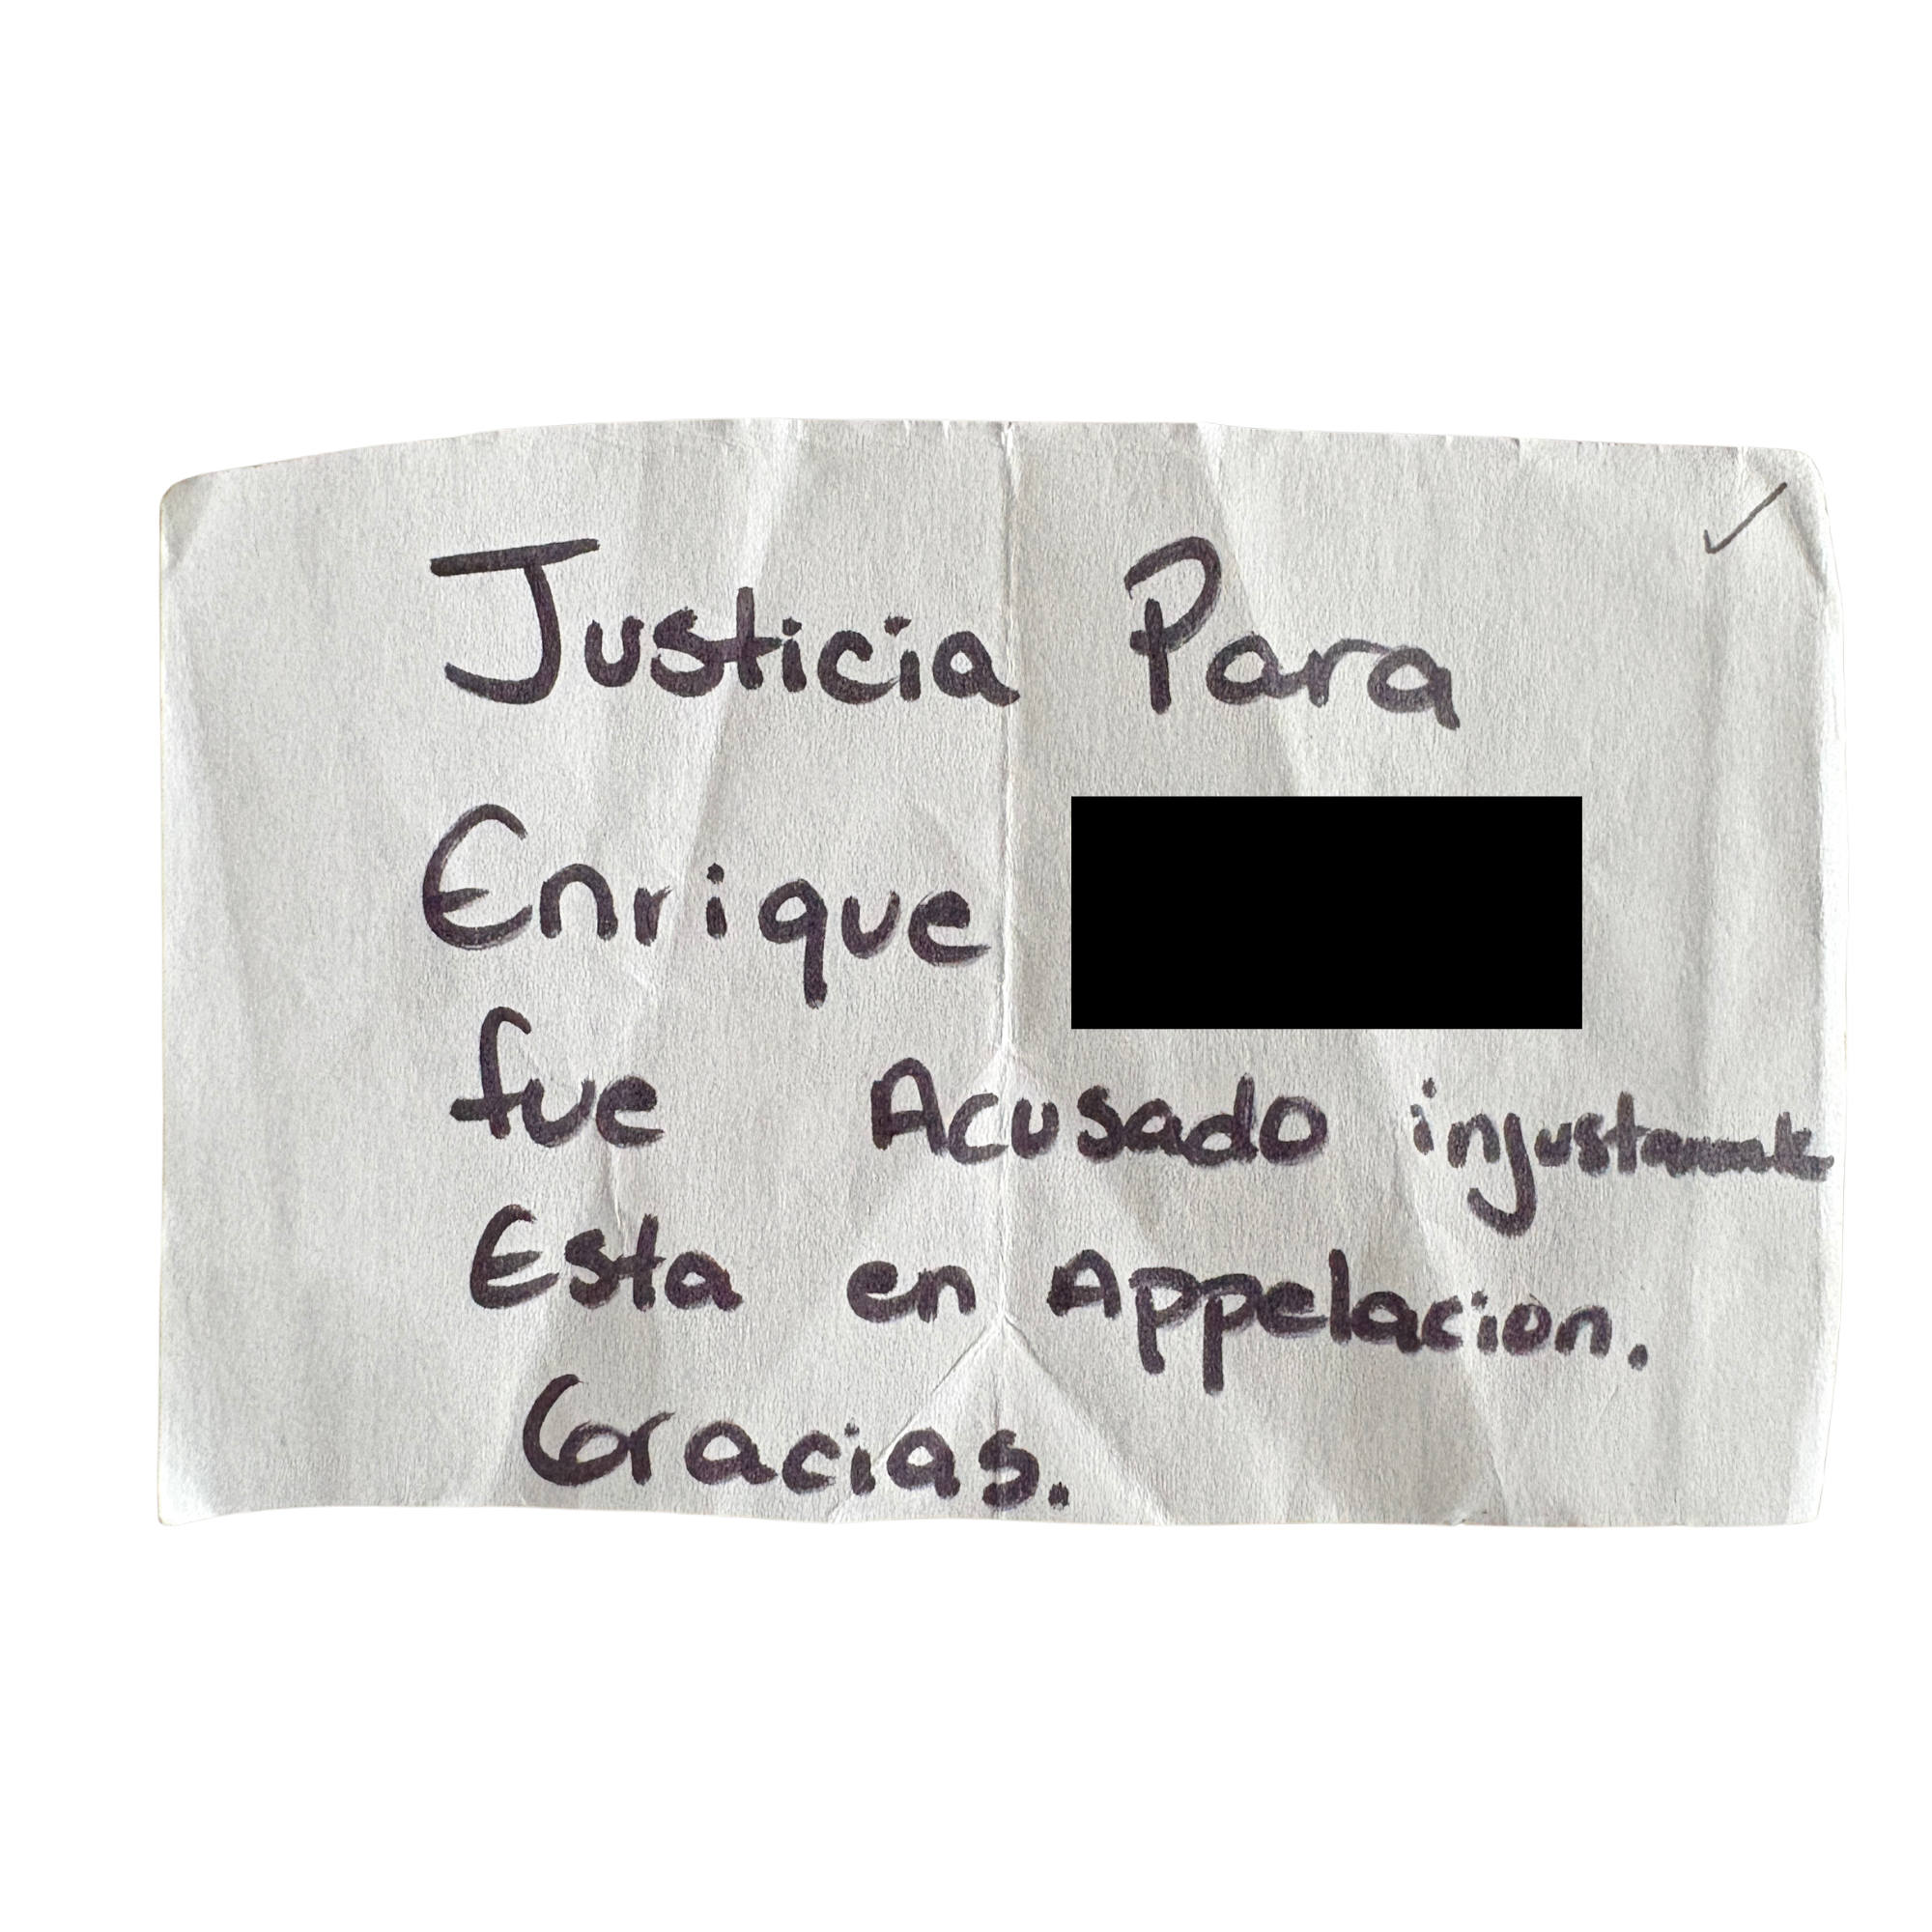 Justicia Para
Enrique
fue Acusado injustamente
Esta en Appelacion.
Gracias.